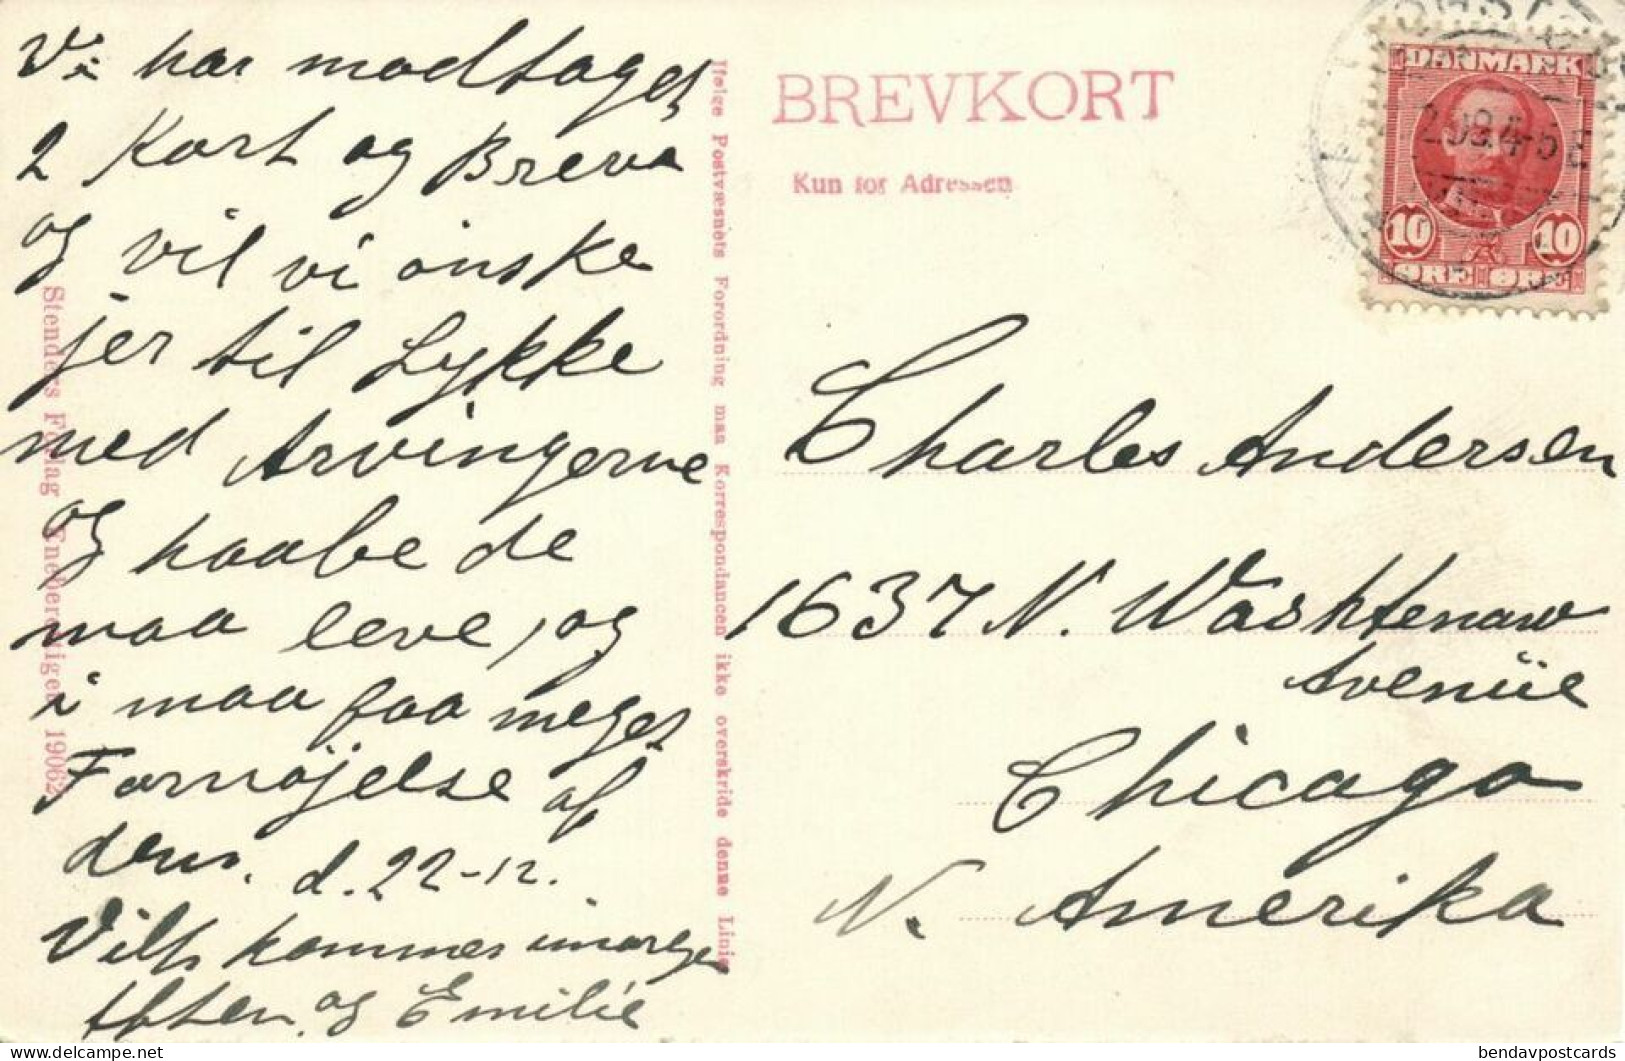 Vi har modtaget
2 Kort og Breve
og vil vi önske
jer til Lykke
med Arvingerne
og haabe de
maa leve, og
i maa faa meget
Fornøjelse af
dem. d. 22-12.
kommer imorgen
Aften og Emilie
Stenders Forlag Eneberettiget 19062
Ifølge Postvæsnets Forordning man Korrespondancen ikke overskride denne Linie
BREVKORT
Kun for Adressen
DANMARK
10 10
ØRE ØRE
4-5E
Charles Andersen
1637 N. Washtenaw
Avenüe
Chicago
N. Amerika
bendavpostcards